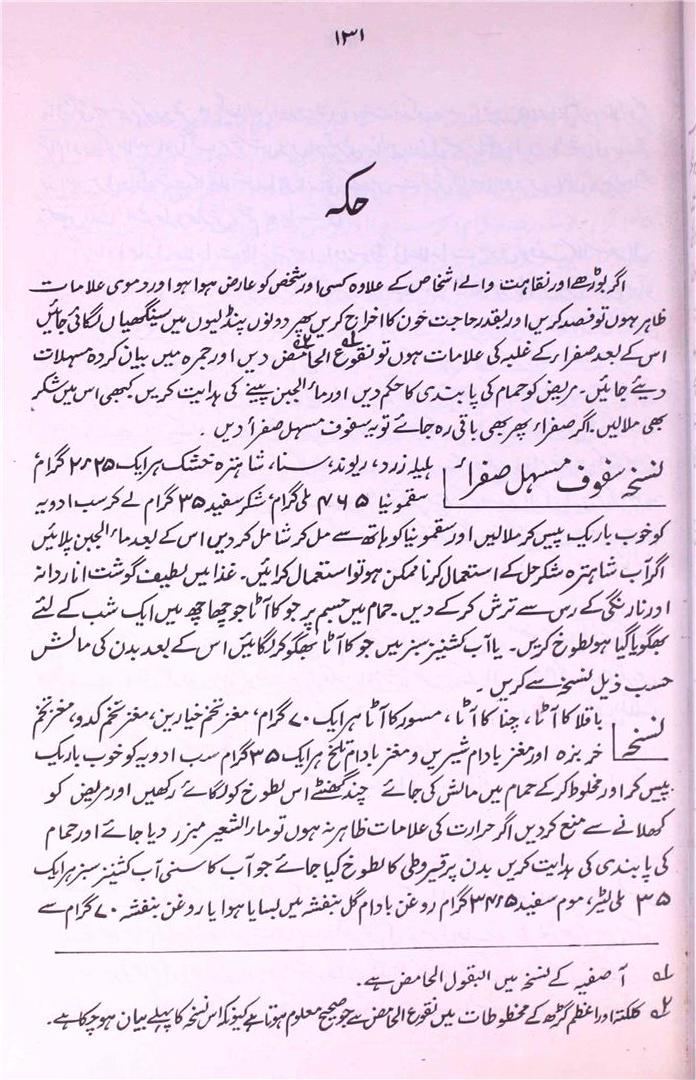 ۱۳۱
حکہ
اگر بوڑھے اور نقاہت والے اشخاص کے علاوہ کسی اور شخص کو عارض ہوا ہو اور دموی علامات
ظاہر ہوں تو فصد کریں اور بقدر حاجت خون کا اخراج کریں پھر دونوں پنڈلیوں میں سینگھیاں لگائی جائیں
اس کے بعد صفراء کے غلبہ کی علامات ہوں تو نقوع۱؎ الحامض۲؎ دیں اور جمرہ میں بیان کردہ مسہلات
دیئے جائیں۔ مریض کو حمام کی پابندی کا حکم دیں اور ماء الجبن پینے کی ہدایت کریں کبھی اس میں شکر
بھی ملالیں۔ اگر صفراء پھر بھی باقی رہ جائے تو یہ سفوف مسہل صفراء دیں۔
نسخہ سفوف مسہل صفراء ہلیلہ زرد، ریوند، سنا، شاہترہ خشک ہر ایک ۲٫۲۵ گرام
سقمونیا ۴۶۵ ملی گرام، شکر سفید ۳۵ گرام لے کر سب ادویہ
کو خوب باریک پیس کر ملالیں اور سقمونیا کو ہاتھ سے مل کر شامل کر دیں اس کے بعد ماء الجبن پلائیں
اگر آب شاہترہ شکر حل کے استعمال کرنا ممکن ہو تو استعمال کرائیں۔ غذا میں لطیف گوشت انار دانہ
اور نارنگی کے رس سے ترش کر کے دیں۔ حمام میں جسم پر جو کا آٹا جو چھاچھ میں ایک شب کے لئے
بھگویا گیا ہو لطوخ کریں۔ یا آب کشنیز سبز میں جو کا آٹا بھگو کر لگائیں اس کے بعد بدن کی مالش
حسب ذیل نسخہ سے کریں۔
نسخہ باقلا کا آٹا، چنا کا آٹا، مسور کا آٹا ہر ایک ۷۰ گرام، مغز تخم خیارین، مغز تخم کدو، مغز تخم
خربزہ اور مغز بادام شیریں و مغز بادام تلخ ہر ایک ۳۵ گرام سب ادویہ کو خوب باریک
پیس کر اور مخلوط کر کے حمام میں مالش کی جائے چند گھنٹے اس لطوخ کو لگائے رکھیں اور مریض کو
کھلانے سے منع کر دیں اگر حرارت کی علامات ظاہر نہ ہوں تو ماء الشعیر مبزر دیا جائے اور حمام
کی پابندی کی ہدایت کریں بدن پر قیروطی کا لطوخ کیا جائے جو آب کاسنی آب کشنیز سبز ہر ایک
۳۵ ملی لیٹر، موم سفید گرام روغن بادام گل بنفشہ میں بسایا ہوا یا روغن بنفشہ ۷۰ گرام سے
۱؎ آصفیہ کے نسخہ میں البقول الحامض ہے۔
۲؎ کلکتہ اور اعظم گڑھ کے مخطوطات میں نقوع الحامض ہے جو صحیح معلوم ہوتا ہے کیونکہ اس نسخہ کا پہلے بیان ہو چکا ہے۔